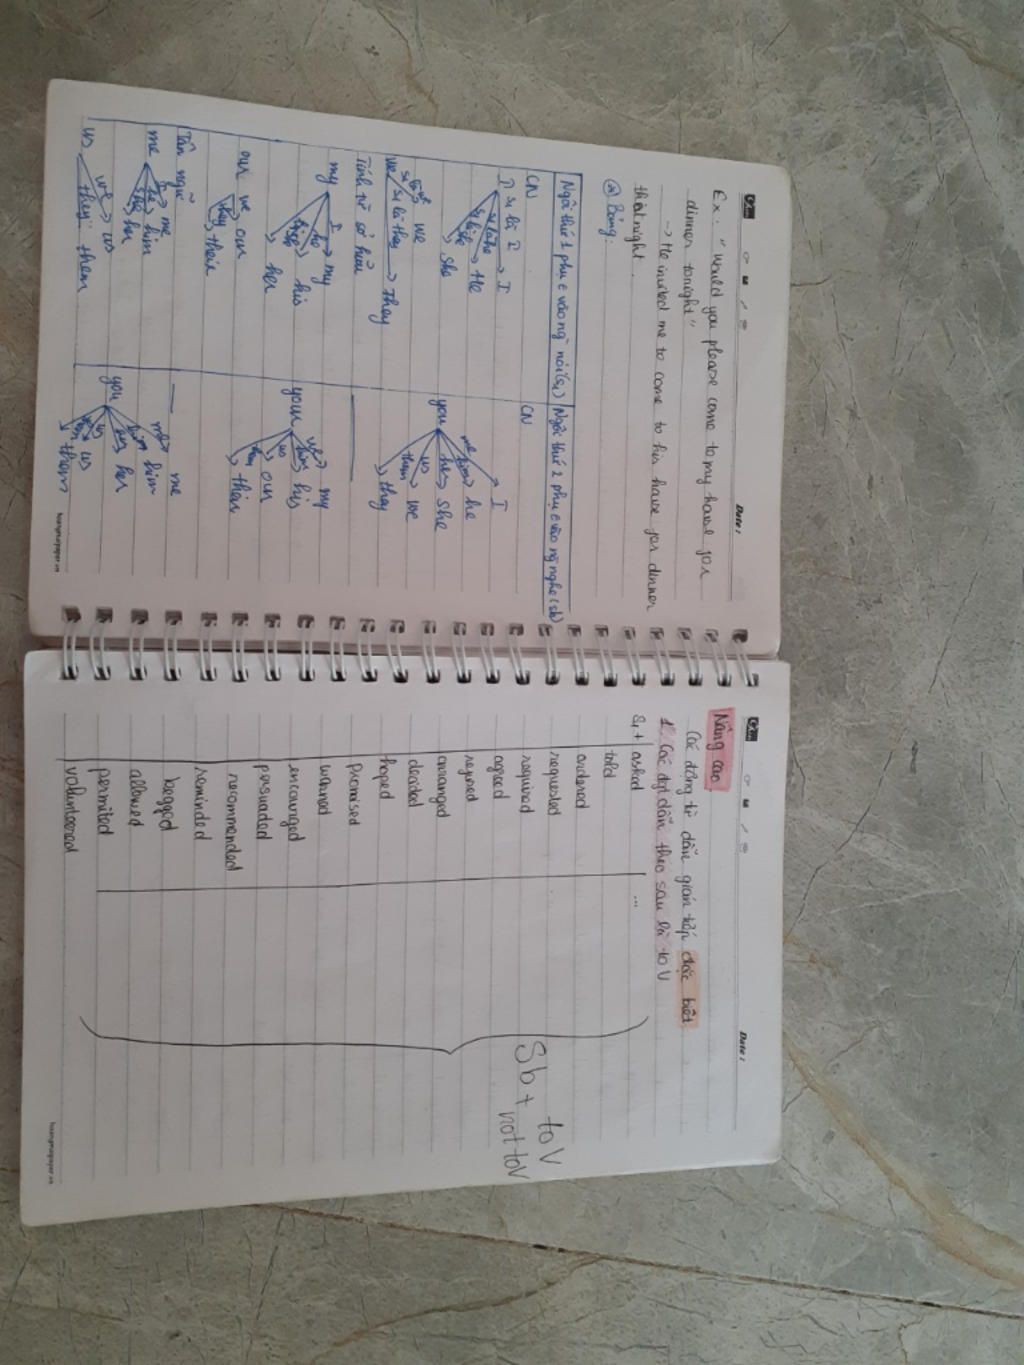 Date:
Ex: "Would you please come to my house for
dinner tonight"
→ He invited me to come to his house for dinner
that night.
Bảng:
Ngôi thứ 1 phụ € vào ng nói (S1)
Ngôi thứ 2 phụ € vào ng nghe (sb)
CN
CN
I S1 là I → I
S1 là he → He
she
we we
S1 là they → they
you
I
me
him he
he she
us we
them they
Tính từ sở hữu
my I my
he his
she her
our we our
they their
you
me my
him his
us our
them their
Tân ngữ
me I me
he him
she her
us we us
they them
you
me me
him him
her her
us us
them them
hoangmaipaper.vn
Date:
Nâng cao
Các động từ dẫn gián tiếp đặc biệt
1. Các đgt dẫn theo sau là to V
S1 + asked ...
told
ordered
requested
required
agreed
refused
arranged
decided
hoped
promised
warned
encouraged
persuaded
recommended
reminded
begged
allowed
permited
volunteered
Sb + to V
not to V
hoangmaipaper.vn